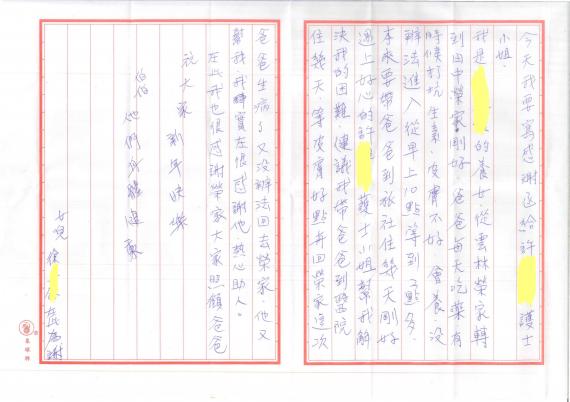 今天我要寫感謝函給許 護士
小姐.
我是 的養女.從雲林榮家轉
到田中榮家.剛好.爸爸每天吃藥有
時候打抗生素.皮膚不好.會養.沒
辦法進入從早上10點等到3點多.
本來要帶爸爸到旅社住幾天剛好
遇上好心的許 護士小姐幫我解
決我的困難.建議我帶爸爸到醫院
住幾天等皮膚好點再回榮家這次
爸爸生病了又沒辦法回去榮家.他又
幫我.我 實在很感謝他熱心助人。
在此我也很感謝榮家大家照顧爸爸
祝大家 新年快樂
伯伯他們身體健康
女兒 徐 在此為謝